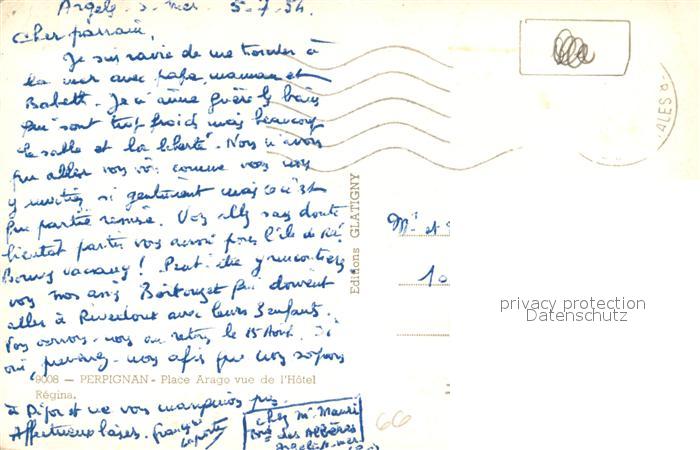 Argelès-s-mer 5-7-54.
Cher parrain,
Je suis ravie de me trouver à
la mer avec papa, maman et
Babeth. Je n'aime guère les bains
qui sont trop froids mais beaucoup
le sable et la liberté. Nous n'avons
pu aller vous voir comme vous nous
y invitiez si gentiment mais ce n'est
que partie remise. Vous allez sans doute
bientôt partir vous aussi pour l'île de Ré.
Bonnes vacances! Peut-être y rencontrerez
vous nos amis qui doivent
aller à Rivedoux avec leurs 3 enfants.
Vos verrons-nous au retour le 15 Août. Si
oui, prévenez-nous afin que nous soyons
9008 — PERPIGNAN - Place Arago vue de l'Hôtel
Régina.
à Dijon et ne vous manquions pas.
Affectueux baisers.
chez Mr Mauri
des Albères
Argelès-s-mer
Editions GLATIGNY
ALES
Mr et
10
privacy protection
Datenschutz
66